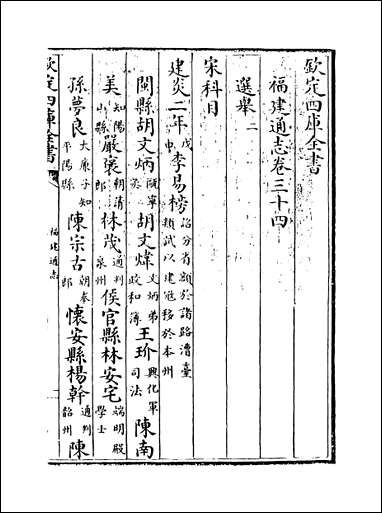 欽定四庫全書
福建通志卷三十四
選舉二
宋科目
建炎二年戊申李易榜詔分省額於諸路漕臺類試以建寇移於本州
閩縣胡文炳 胡文煒文炳弟政和簿王玠興化軍司法陳南
美知陽山縣嚴褒朝清郎林茂通判泉州侯官縣林安宅端明殿學士
孫夢良大廉子知平陽縣陳宗古朝奉郎懷安縣楊幹通判韶州陳
欽定四庫全書
福建通志